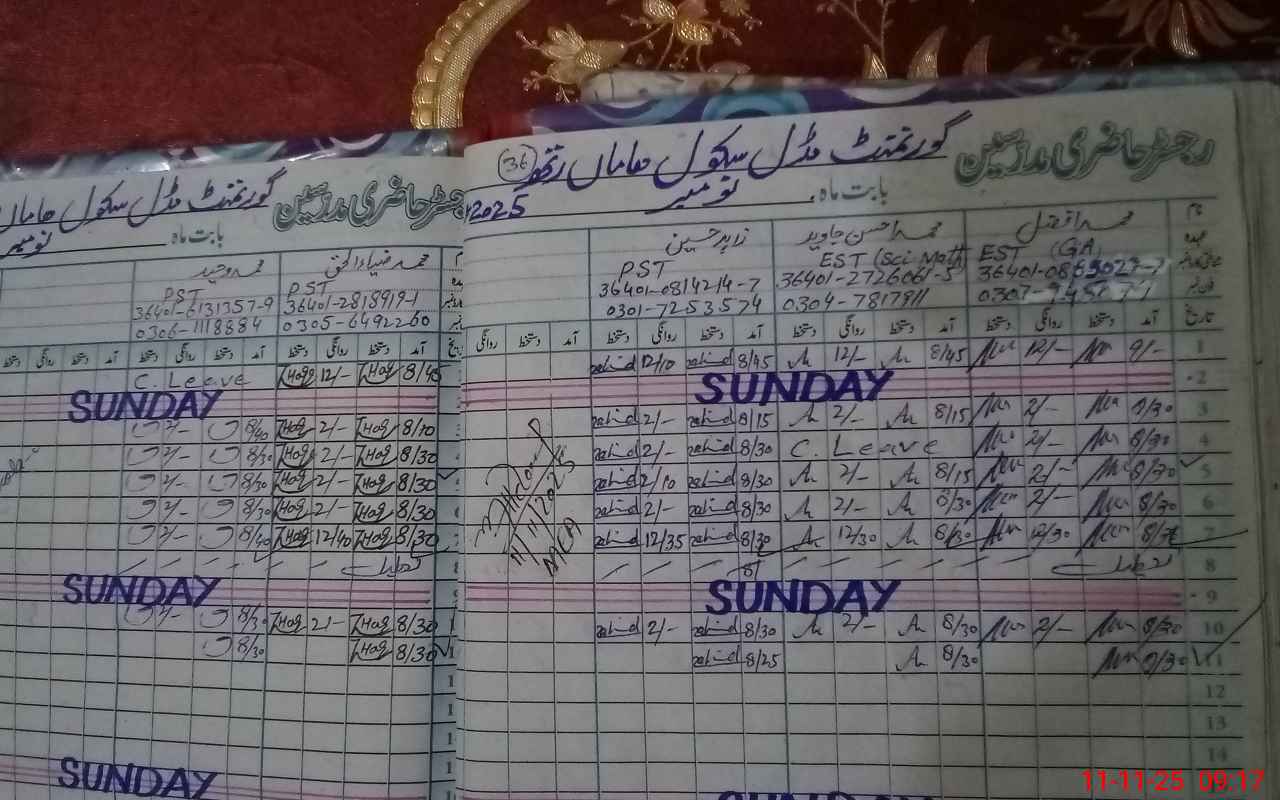 رجسٹر حاضری مدرسین گورنمنٹ مڈل سکول (36)
بابت ماہ نومبر 2025
محمد افضل محمد احسن جاوید زاہد حسین
EST (GA) EST (Sci Math) PST
36401-2726061-5 36401-0814214-7
0304-7817911 0301-7253574
تاریخ آمد دستخط روانگی دستخط آمد دستخط روانگی دستخط آمد دستخط روانگی دستخط آمد دستخط روانگی دستخط
1 9/- 12/- 8/45 12/- 8/45 zahid 12/10 zahid
2 SUNDAY
3 8/30 2/- 8/15 2/- 8/15 zahid 2/- zahid
4 8/30 2/- C. Leave 8/30 zahid 2/- zahid
5 8/30 2/- 8/15 2/- 8/30 zahid 2/10 zahid
6 8/30 2/- 8/30 2/- 8/30 zahid 2/- zahid
7 8/30 12/30 8/30 12/30 8/30 zahid 12/35 zahid
8 تعطیل
9 SUNDAY
10 8/30 2/- 8/30 2/- 8/30 zahid 2/- zahid
11 8/30 8/30 8/25 zahid
12
13
14
11/11/2025
MEA
رجسٹر حاضری مدرسین گورنمنٹ مڈل سکول
بابت ماہ نومبر
محمد ضیاء الحق محمد وحید
PST PST
36401-2818919-1 36401-6131357-9
0305-6492260 0306-1118884
آمد دستخط روانگی دستخط آمد دستخط روانگی دستخط آمد دستخط روانگی دستخط
8/45 ZHaq 12/- ZHaq C. Leave
SUNDAY
8/10 ZHaq 2/- ZHaq 8/40 2/-
8/30 ZHaq 2/- ZHaq 8/30 2/-
8/30 ZHaq 2/- ZHaq 8/30 2/-
8/30 ZHaq 2/- ZHaq 8/30 2/-
8/30 ZHaq 12/40 ZHaq 8/40 2/-
تعطیل
SUNDAY
8/30 ZHaq 2/- ZHaq 8/30 2/-
8/30 ZHaq 8/30
SUNDAY
11-11-25 09:17